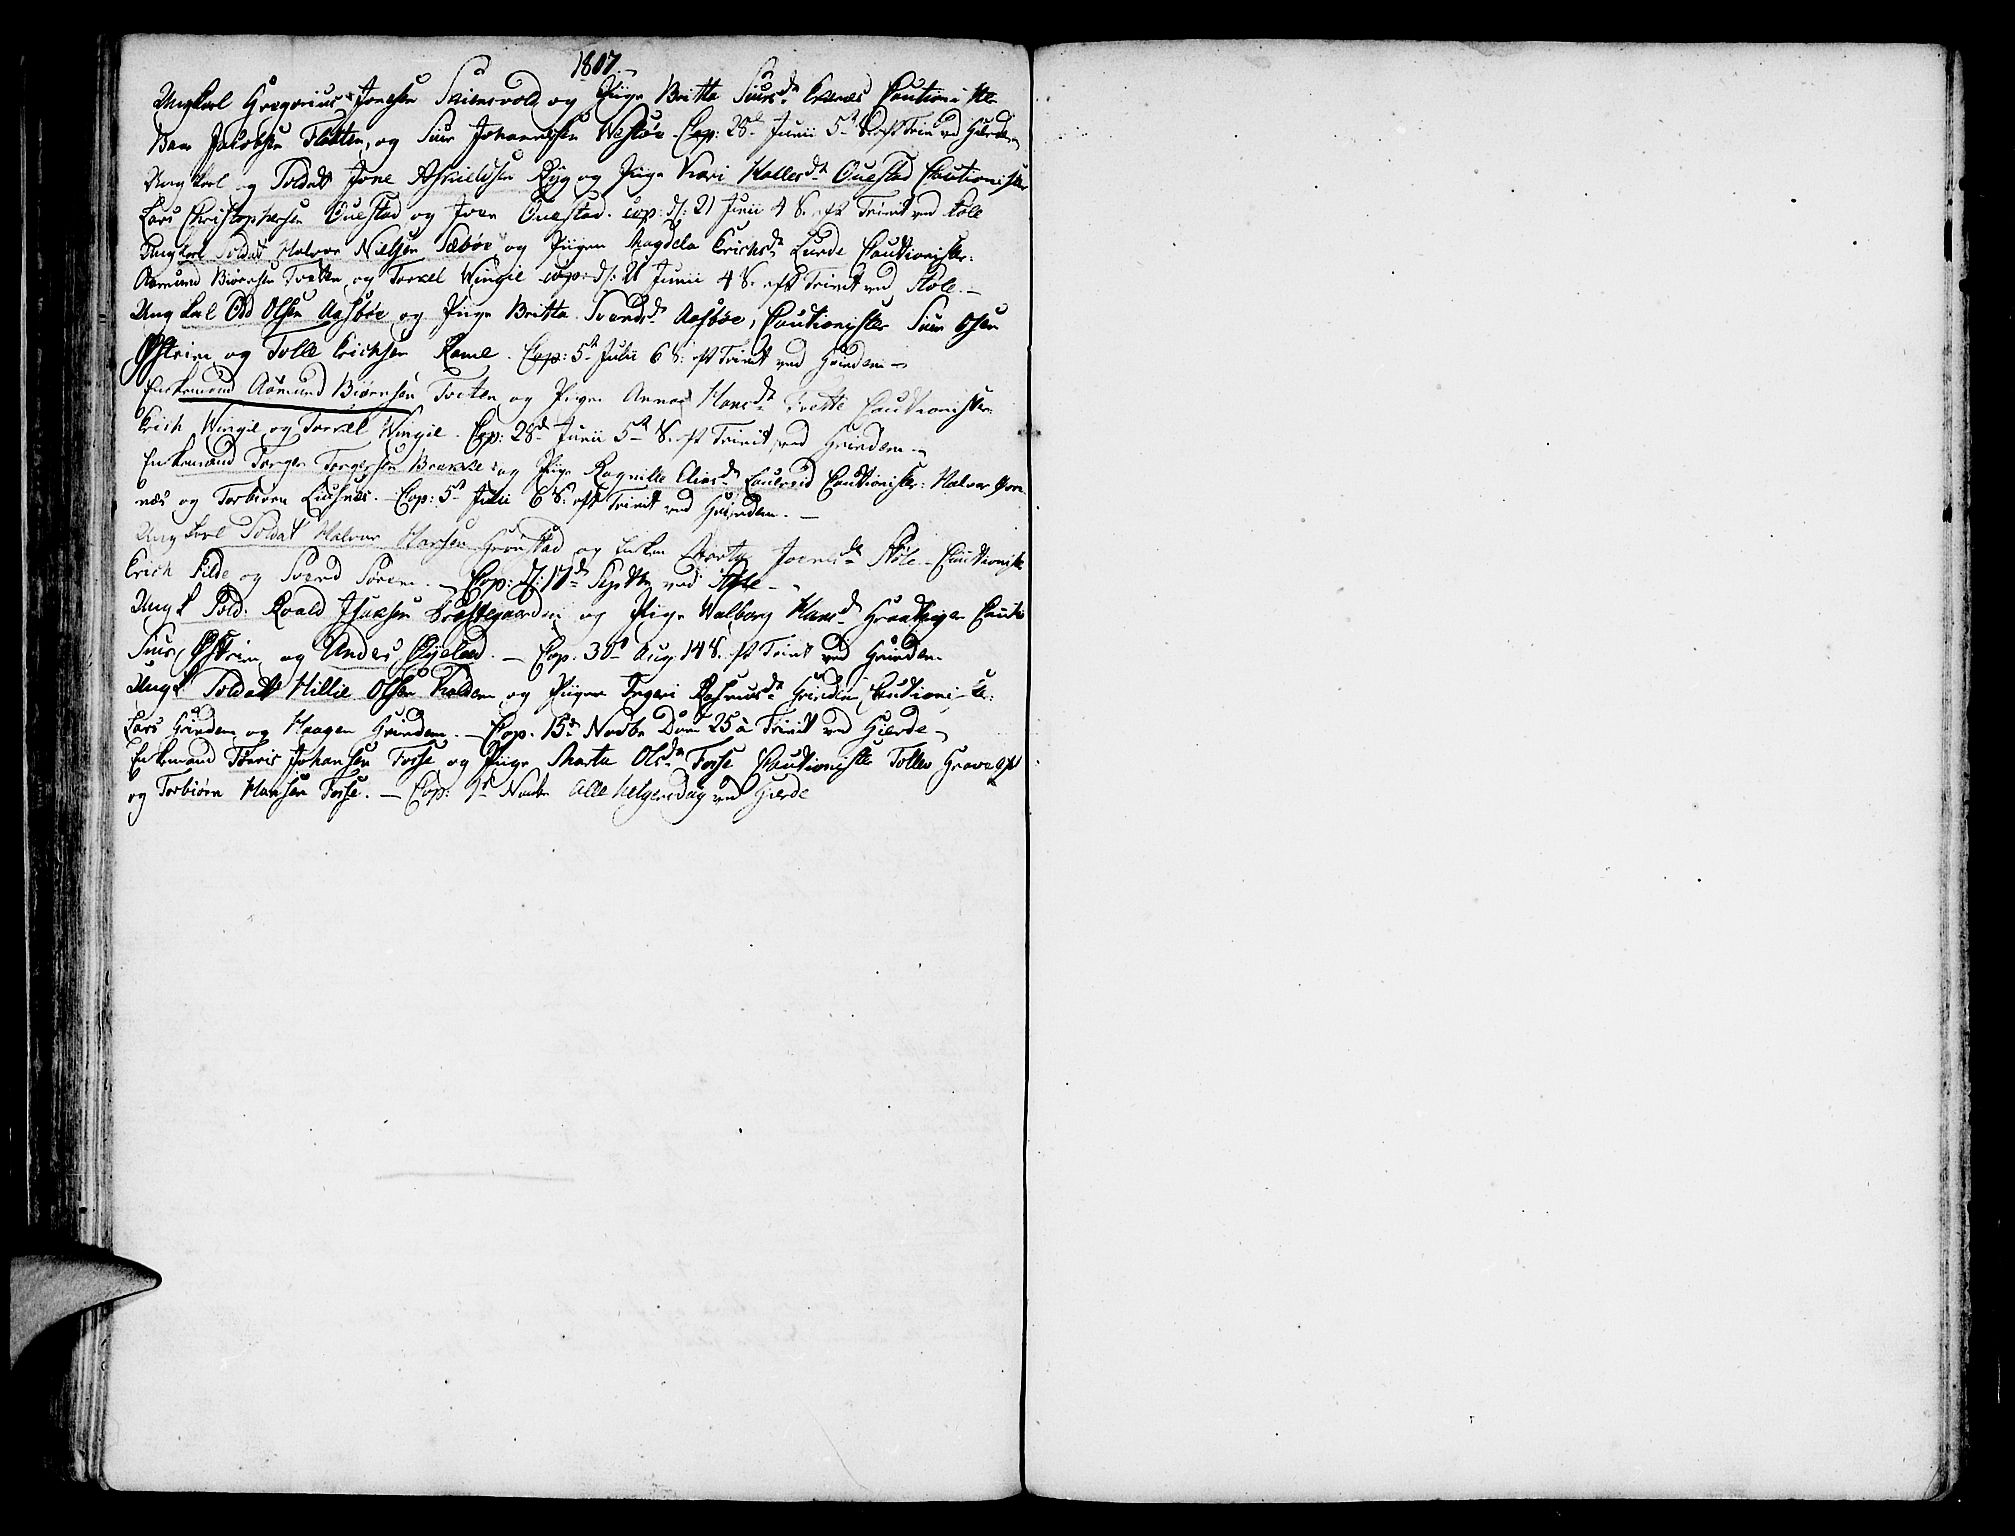 1807
Ungkarl Gregorius Jonesen Skiensvold og Pige Britta Siursdr Eknes Cautionister
Baar Jacobsen Flatten, og Siur Johannesen Westøe. Cop: 28de Junii 5te S. eft Trin: ved Grinden
Ungkarl og Soldat Jone Askieldsen Ryg og Pige Kari Hallesdr Ouestad Cautionister
Lars Christophersen Ouestad og Joen Ouestad. cop: d: 21 Junii 4 S. eft Trinit ved Støle
Ungkarl Soldat Halvor Nielsen Sæbøe og Pigen Magdela Erichsdr Lunde Cautionister:
Aamund Biørnsen Tveten og Torkel Wingie cop: d: 21 Junii 4 S. eft Trinit ved Støle. —
Ungkarl Odd Olsen Aasbøe og Pige Britta Svendsdr Aasbøe, Cautionister Siur Olsen
Østrim og Tolle Erichsen Rame. Cop: 5te Julii 6 S: eft Trinit ved Grinden —
Enkemand Aamund Biørnsen Tveten og Pigen Anna Hansdr Frette Cautionister:
Erich Wingie og Torkel Wingie. Cop: 28de Junii 5te S. eft Trinit ved Grinden —
Enkemand Torger Torgersen Brekke og Pige Ragnille Eliasdr Cautionister: Halvor
næs og Torbiørn Liusnes. — Cop: 5te Julii 6 S. eft Trinit ved Grinden. —
Ungkarl Soldat Halvor Hansen Grønstad og Enken Marta Joensdr Støle — Cautionister
Erich Silde og Svend Sørem. — Cop: d: 17de Septbr ved Støle —
Ungk Sold: Roald Isaksen Prestegaarden og Pige Walborg Hansdr Cautio
Siur Østrim og Anders — Cop. 30te Aug. 14 S. eft Trinit ved Grinden.
Ungk Soldat Hillie Olsen Halden og Pigen Ingeri Rasmusdr Grinden, Cautionister:
Lars Grinden og Haagen Grinden. — Cop. 15de Novbr Dom 25 a Trinit ved Gierde —
Enkemand Sørris Johansen Fosse og Pige Marta Olsdr Fosse Cautionister Tollev
og Torbiørn Hansen Fosse. — Cop: 1te Novbr Alle helgensdag ved Gierde